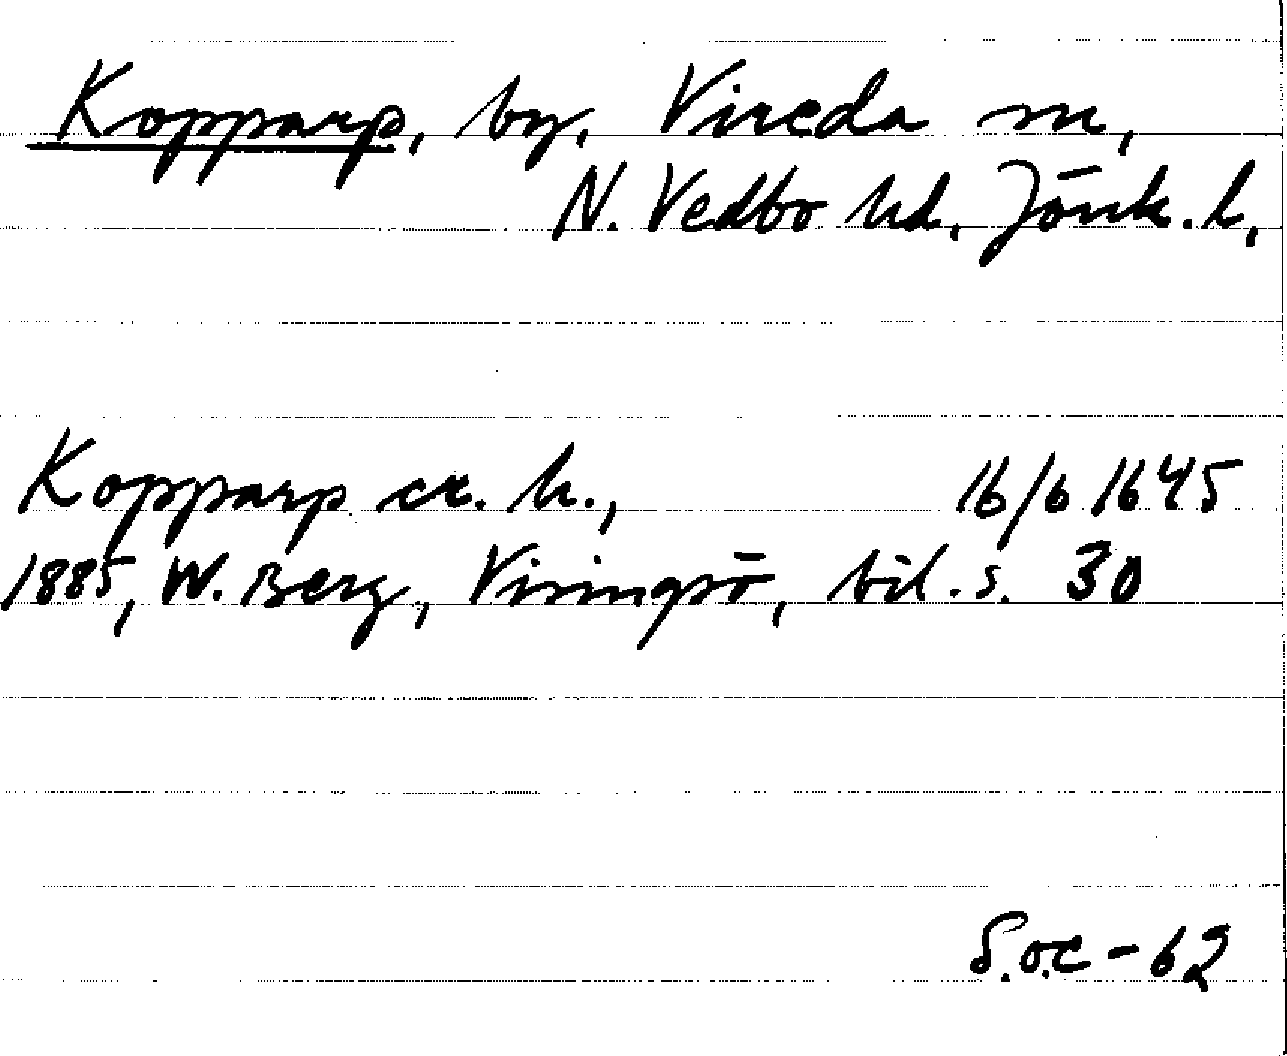 Kopparp, by, Vireda sn,
N. Vedbo hd, Jönk. l,
Kopparp cr. h., 16/6 1645
1885, W. Berg, Visingsö, bil. s. 30
S.o.c - 62